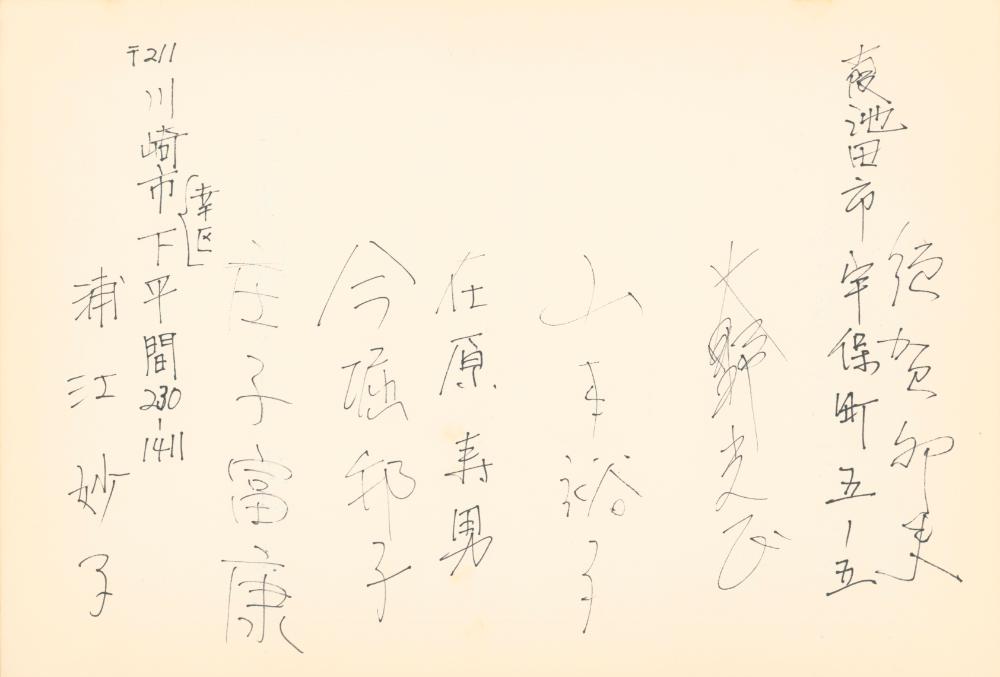 賀卯夫
池田市宇保町五ー五
大野
山本裕子
在原寿男
今堀邦子
庄子富康
幸区
〒211川崎市下平間230-1411
浦江妙子